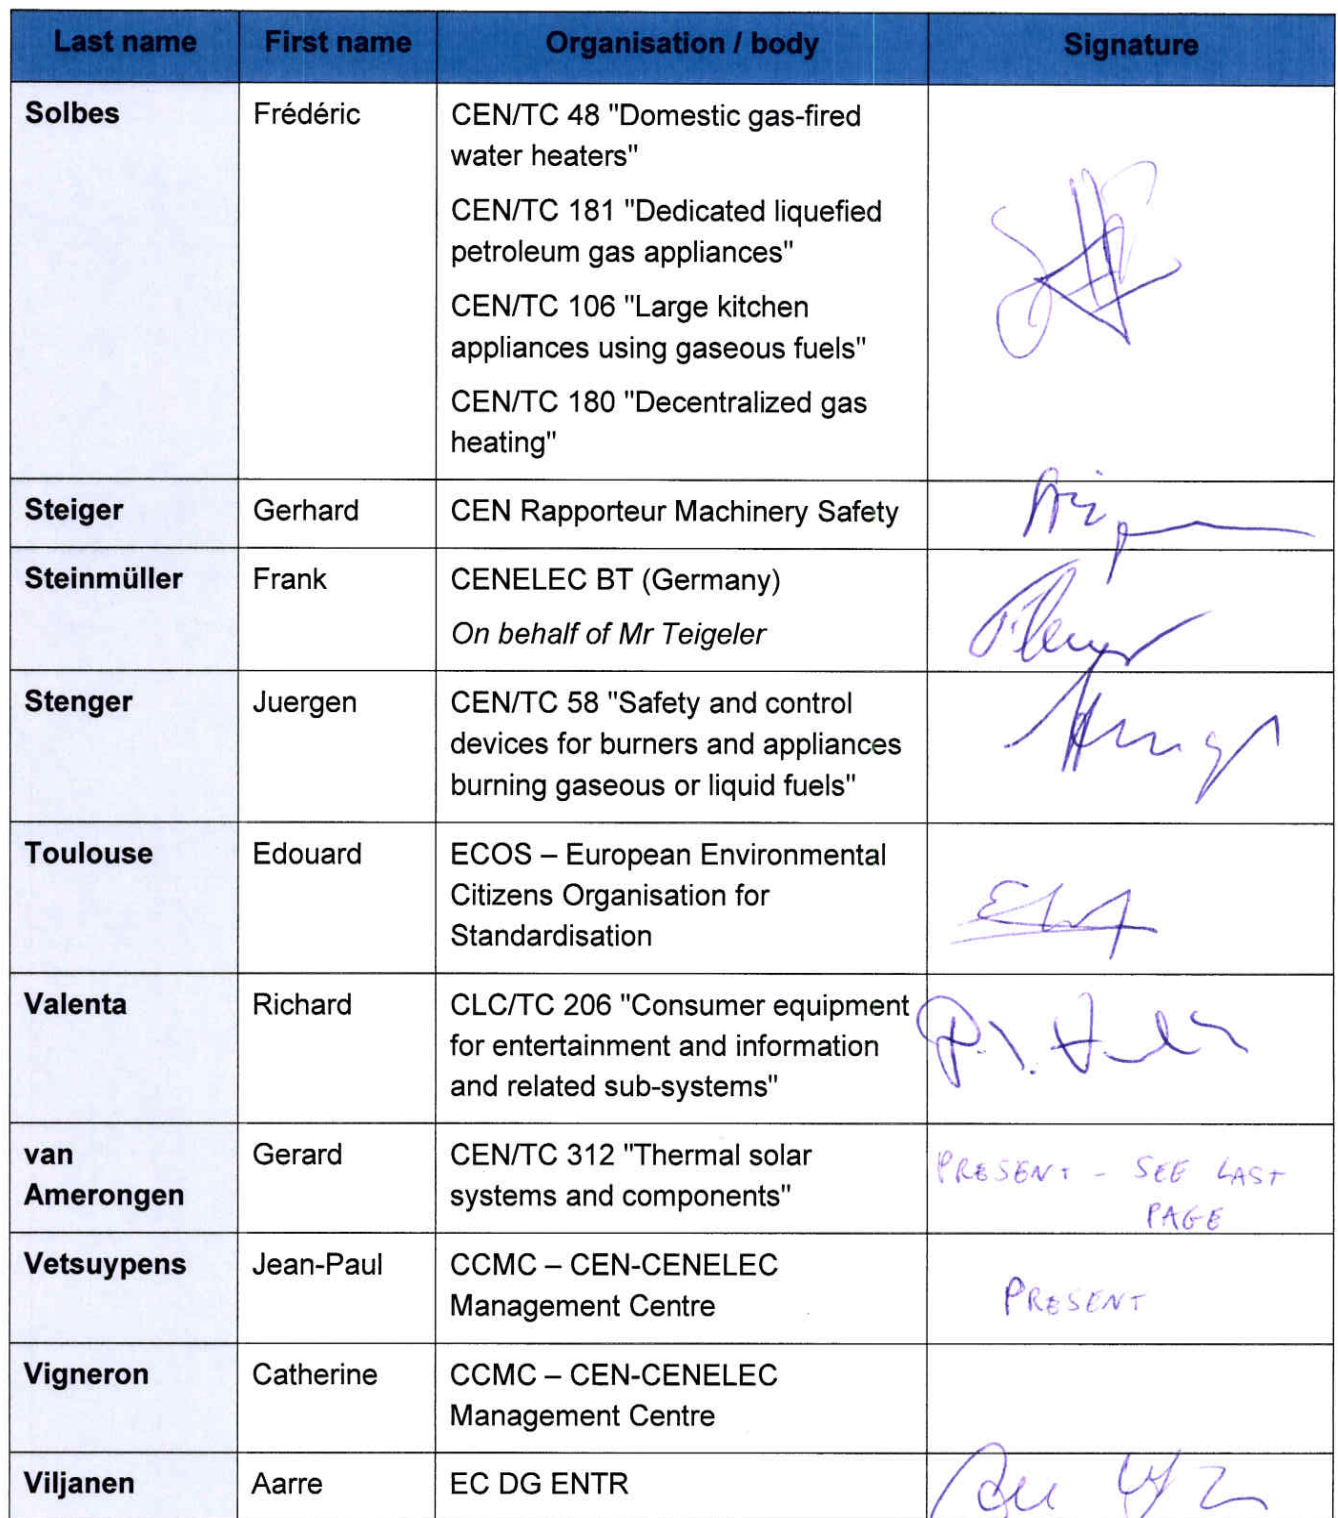 Last name First name Organisation / body Signature
Solbes Frédéric CEN/TC 48 "Domestic gas-fired
water heaters"
CEN/TC 181 "Dedicated liquefied
petroleum gas appliances"
CEN/TC 106 "Large kitchen
appliances using gaseous fuels"
CEN/TC 180 "Decentralized gas
heating"
Steiger Gerhard CEN Rapporteur Machinery Safety
Steinmüller Frank CENELEC BT (Germany)
On behalf of Mr Teigeler
Stenger Juergen CEN/TC 58 "Safety and control
devices for burners and appliances
burning gaseous or liquid fuels"
Toulouse Edouard ECOS – European Environmental
Citizens Organisation for
Standardisation
Valenta Richard CLC/TC 206 "Consumer equipment
for entertainment and information
and related sub-systems"
van Gerard CEN/TC 312 "Thermal solar PRESENT - SEE LAST
Amerongen systems and components" PAGE
Vetsuypens Jean-Paul CCMC – CEN-CENELEC
Management Centre PRESENT
Vigneron Catherine CCMC – CEN-CENELEC
Management Centre
Viljanen Aarre EC DG ENTR